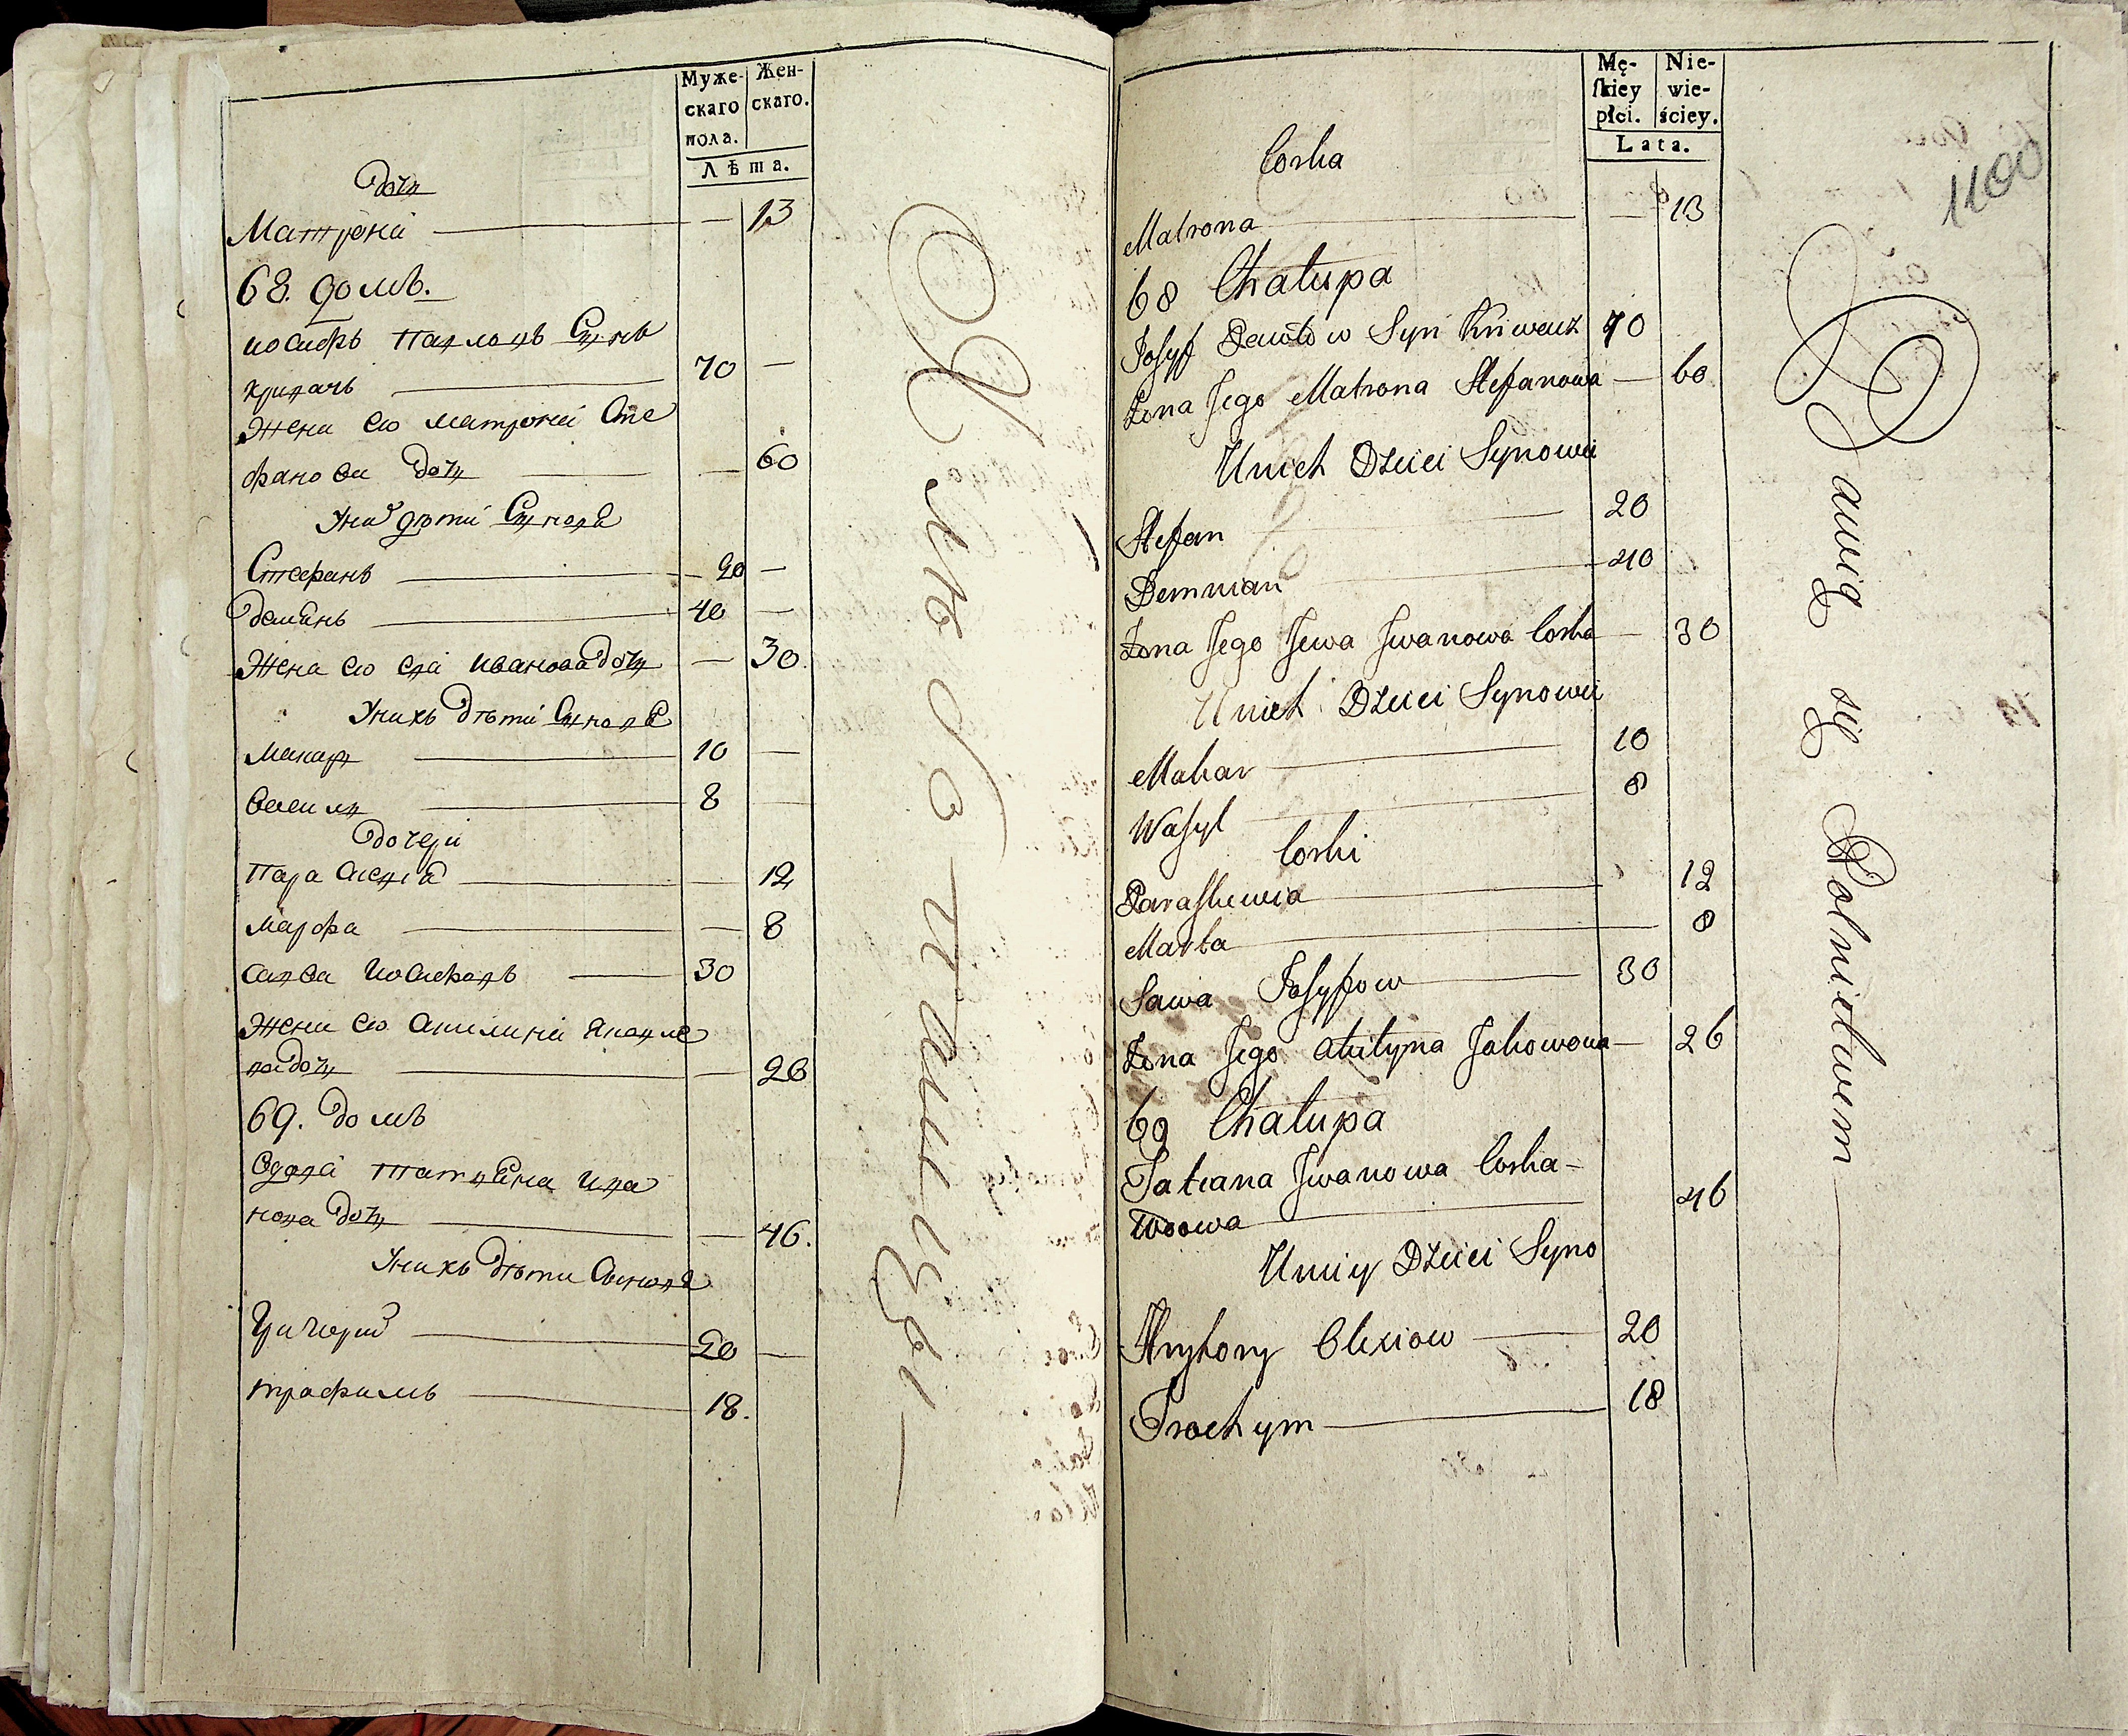 Муже-
скаго
пола.
Жен-
скаго.
Лѣта.
дочъ
Матрона — 13
68. домъ.
иосифъ Павловъ Сынъ
кривачъ — 70 —
Жена Его матрона Сте
фанова дочъ — 60
Унихъ дѣти Сыновя
Стефанъ — 20 —
демянъ — 40 —
Жена Его ева иванова дочъ — 30.
Унихъ дѣти Сыновя
макаръ — 10 —
василъ — 8 —
дочери
Параскевия — 12
марфа — 8
савва иосифовъ — 30
Жена Его акилина яковле
ва дочъ — 26
69. домъ
вдова татияна ива
нова дочъ — 46.
Унихъ дѣти Сыновя
Григорий — 20 —
трофимъ — 18.
Хлѣбопашцы —
Mę-
ſkiey
płci.
Nie-
wie-
ściey.
Lata.
1100
Corka
Matrona — 13
68 Chałupa
Josyf Pawłow Syn Kriwacz 70
Żona Jego Matrona Stefanowa — 60
Unich Dzieci Synowie
Stefan — 20
Demnian — 40
Żona Jego Jewa Jwanowa Corka — 30
Unich Dzieci Synowie
Makar — 10
Wasyl — 8
Corki
Paraskewia — 12
Marta — 8
Sawa Josypow — 30
Żona Jego Akilyna Jakowowa — 26
69 Chałupa
Tatiana Jwanowa Corka —
Wdowa — 46
Uniey Dzieci Syno
Hryhory Olexiow — 20
Trochym — 18
Bawią się Rolnictwem —